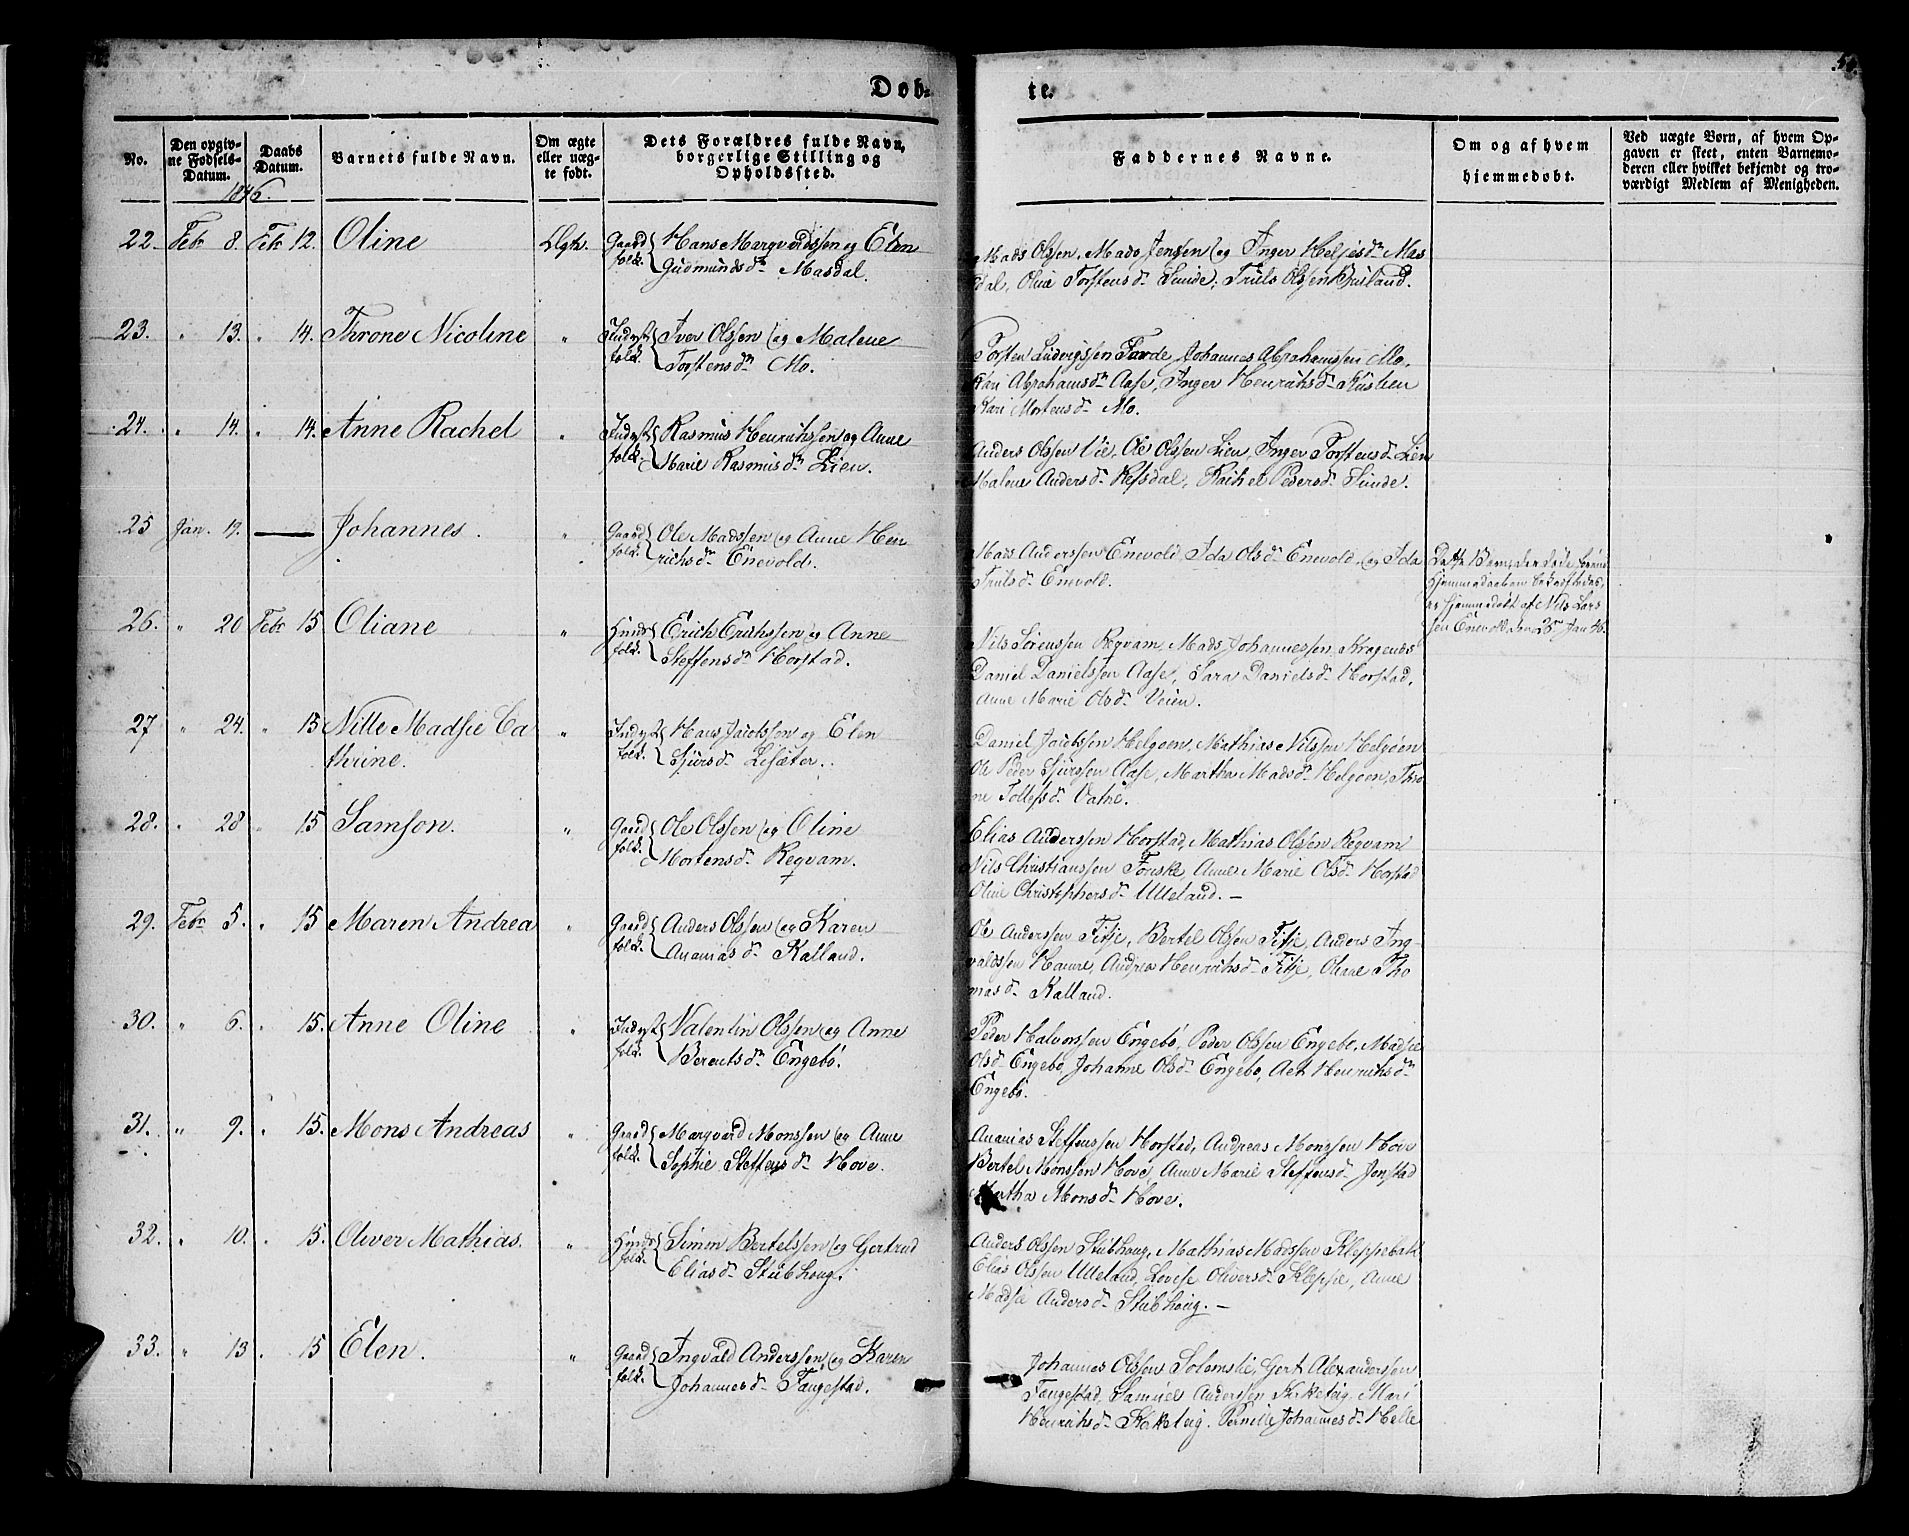 Døb-
te.
No.
Den opgiv-
ne Fødsels-
Datum.
Daabs
Datum.
Barnets fulde Navn.
Om ægte
eller uæg-
te født.
Dets Forældres fulde Navn,
borgerlige Stilling og
Opholdssted.
Faddernes Navne.
Om og af hvem
hjemmedøbt.
Ved uægte Børn, af hvem Op-
gaven er skeet, enten Barnemo-
deren eller hvilket bekjendt og tro-
værdigt Medlem af Menigheden.
1846.
22. Febr 8. Febr 12. Oline
Gaard folk. Hans Marqvardssen og Elen
Gudmundsdr Masdal.
Mads Olssen, Mads Jenssen og Inger Heljesdr Mas
dal, Olia Torstensdr Sunde, Truls Olssen
23. " 13. " 14. Throne Nicoline "
Indrst folk. Iver Olssen og Malene
Torstensdr Mo.
Torsten Ludvigssen Førde, Johannes Abrahamssen Mo,
Kari Abrahamsdr Aase, Inger Henrichsdr
Kari Mortensdr Mo.
24. " 14. " 14. Anne Rachel "
Indrst folk. Rasmus Henrichssen og Anne
Marie Rasmusdr Lien.
Anders Olssen Vie, Ole Olssen Lien, Inger Torstensdr Lien
Malene Andersdr Refsdal, Rachel Pedersdr Sunde.
25 Jan. 19. — Johannes. "
Gaard folk. Ole Madssen og Anne Hen
richsdr Enevold.
Mads Anderssen Enevold, Ida Olsdr Enevold, og Ida
Trulsdr Enevold.
Dette Barn, der døde førend
Hjemmedaaben bekræftedes,
er hjemmedøbt af Nils Lars
sen Enevold, den 25 Jan 46.
26. " 20 Febr 15 Oliane "
Huus folk. Erich Erichssen og Anne
Steffensdr Horstad.
Nils Sørenssen Reqvam, Mads Johannessen
Daniel Danielssen Aase, Sara Danielsdr Horstad,
Anne Marie Olsdr Veien.
27 " 24. " 15 Nille Madsie Ca "
thrine.
Indrst folk. Hans Jacobssen og Elen
Sjursdr Lisæter.
Daniel Jacobssen Helgøen, Mathias Nilssen Helgøen
Ole Peder Sjurssen Aase, Martha Madsdr Helgøen, Thro
ne Tollefsdr Vatne.
28. " 28 " 15 Samson. "
Gaard folk. Ole Olssen og Oline
Mortensdr Reqvam.
Elias Anderssen Horstad, Mathias Olssen Reqvam
Nils Christianssen Fonske, Anne Marie Olsdr Horstad
Oline Christophersdr Ulleland. —
29. Febr 5. " 15 Maren Andrea "
Gaard folk. Anders Olssen og Karen
Ananiasdr Kalland.
Ole Anderssen Fitje, Bertel Olssen Fitje, Anders Ing-
valdssen Havre, Andrea Henrichsdr Fitje, Oliane Tho
masdr Kalland.
30. " 6. " 15. Anne Oline "
Indrst folk. Valentin Olssen og Anne
Berentsdr Engebø.
Peder Halvorssen Engebø, Peder Olssen Engebø, Madsie
Olsdr Engebø, Johanne Olsdr Engebø, Henrichsdr
Engebø.
31. " 9. " 15. Mons Andreas "
Gaard folk. Marqvard Monssen og Anne
Sophie Steffensdr Hove.
Ananias Steffenssen Horstad, Andreas Monssen Hove
Bertel Monssen Hove, Anne Marie Steffensdr Jonstad
Martha Monsdr Hove.
32. " 10. " 15. Oliver Mathias. "
Huus folk. Simon Bertelssen og Gertrud
Eliasdr Stubhoug.
Anders Olssen Stubhoug, Mathias Madssen
Elias Olssen Ulleland, Lovise Oliversdr Kleppe, Anne
Madsie Andersdr Stubhoug. —
33. " 13 " 15 Elen. "
Gaard folk. Ingvald Anderssen og Karen
Johannesdr Fangestad.
Johannes Olssen Solemslie, Gert Alexanderssen
Fangestad, Samuel Anderssen Mari
Henrichsdr Pernille Johannesdr Helle